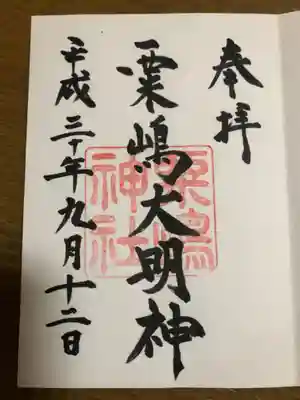 奉拝
粟嶋大明神
粟嶋
神社
平成三十年九月十二日